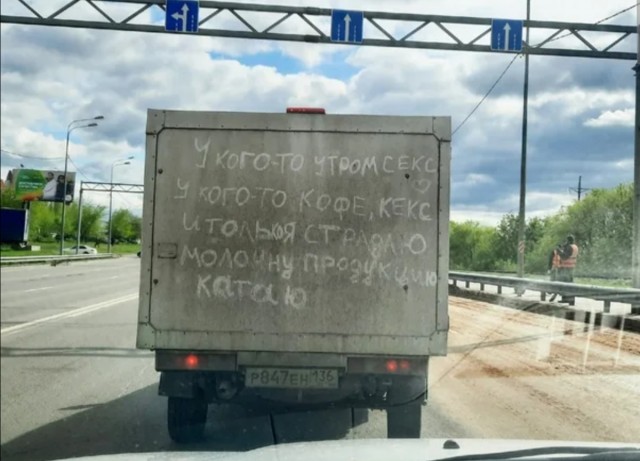 У КОГО-ТО УТРОМ СЕКС
У КОГО-ТО КОФЕ, КЕКС
И ТОЛЬКО Я СТРАДАЮ
МОЛОЧНУ ПРОДУКЦИЮ
КАТАЮ
Р847ЕН 136